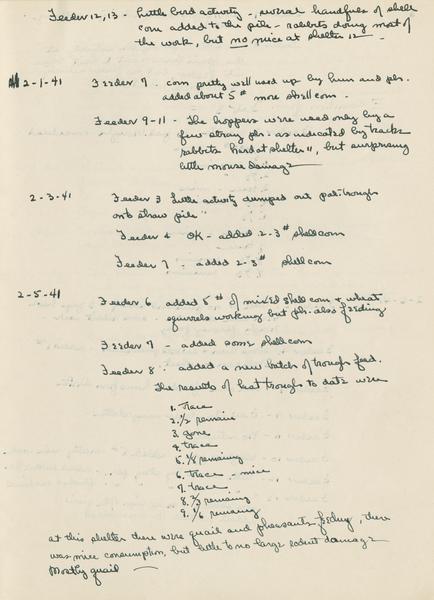 Feeder 12, 13 - Little bird activity - several handfuls of shell
corn added to the pile - rabbits doing most of
the work, but no mice at shelter 12
2-1-41 Feeder 7. corn pretty well used up by hun and ph.
added about 5# more shell corn.
Feeder 9-11 - The hoppers were used only by a
few stray ph. as indicated by tracks
rabbits hard at shelter 11, but surprising
little mouse damage
2-3-41 Feeder 3 Little activity dumped out pail trough
onto straw pile
Feeder 4 OK - added 2-3# shell corn
Feeder 7 - added 2-3# shell corn
2-5-41 Feeder 6 added 5# of mixed shell corn & wheat
squirrels working but ph. also feeding
Feeder 7 - added some shell corn
Feeder 8. added a new batch of trough feed.
The results of last troughs to date were
1. Trace
2. 1/2 remain
3. gone
4. trace
5. 1/8 remaining
6. Trace - mice
7. trace
8. 2/3 remaining
9. 1/6 remaining
at this shelter there were quail and pheasants feeding, there
was mice consumption, but little to no large rodent damage
Mostly quail